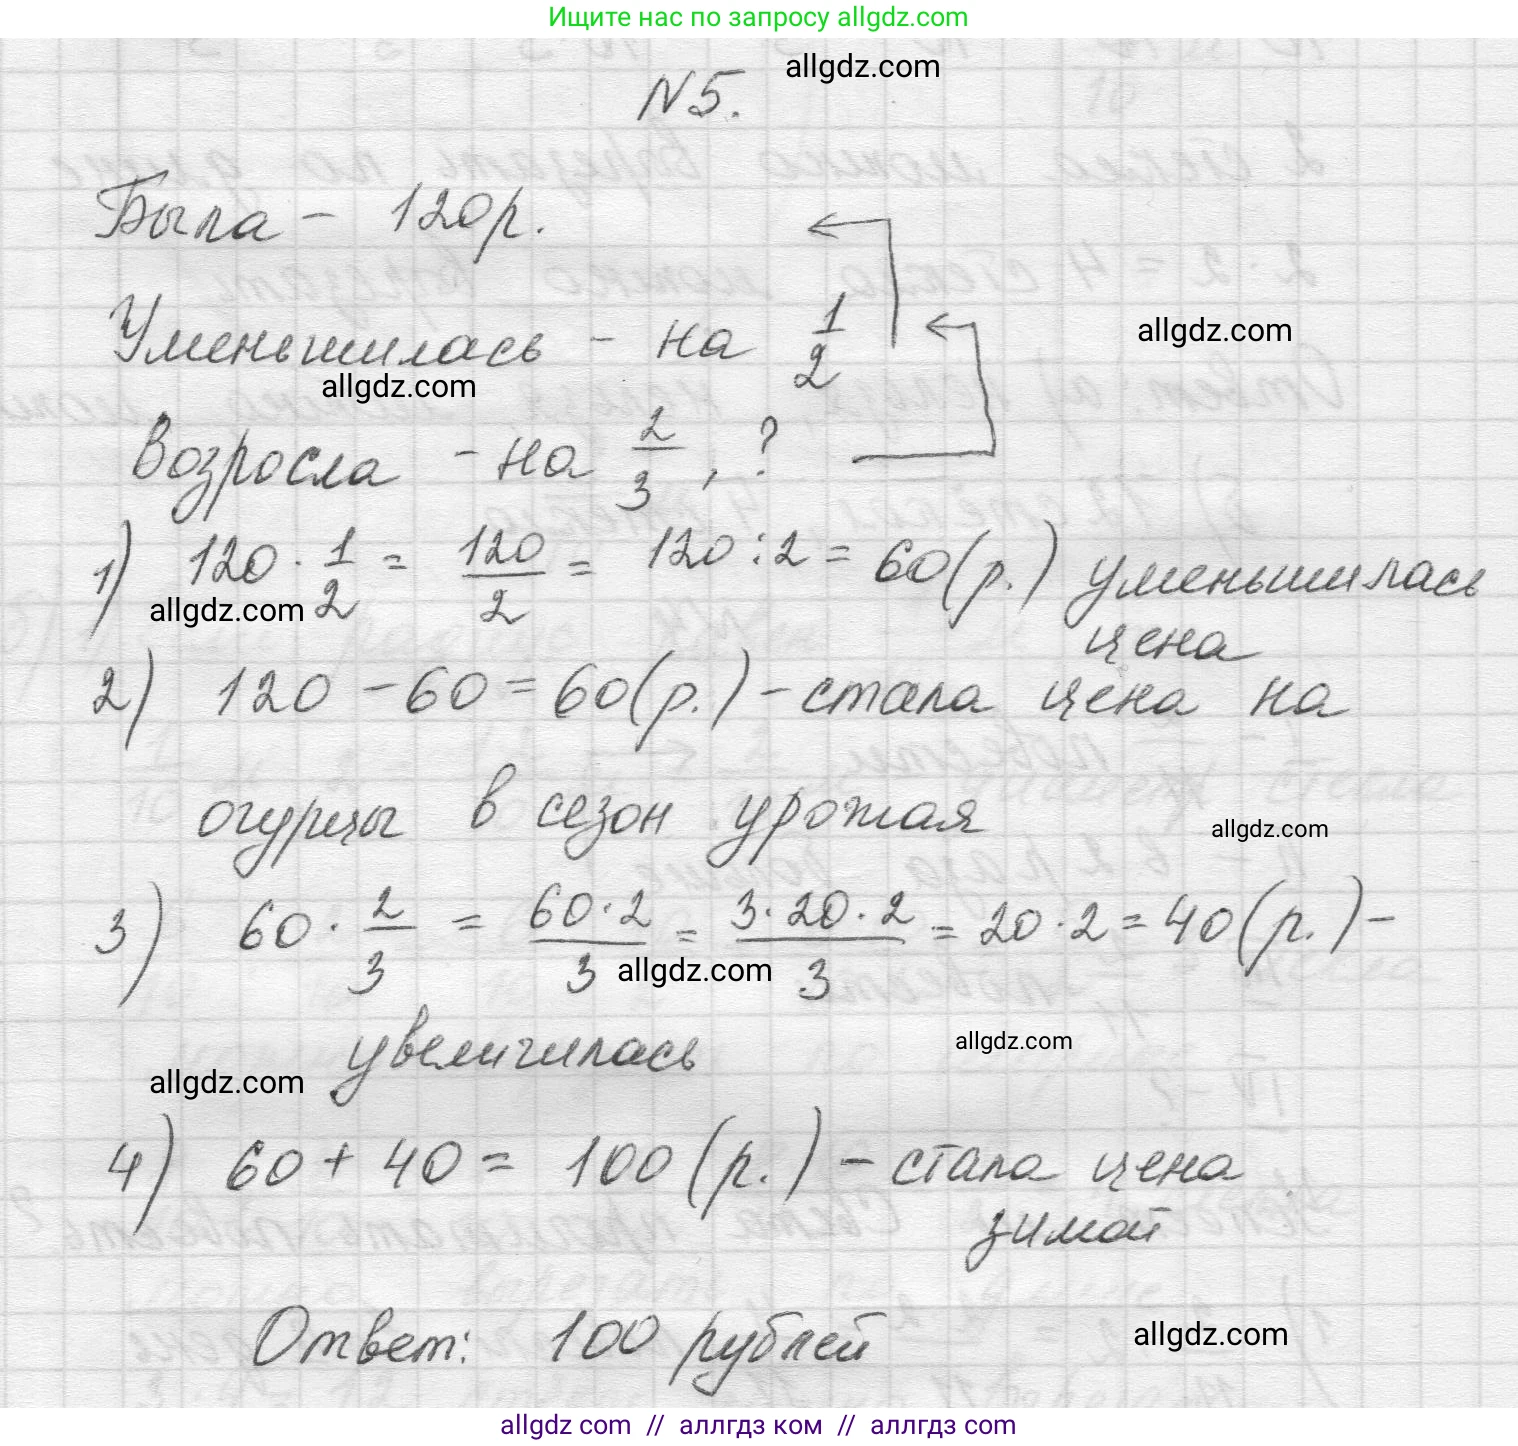 Ищите нас по запросу allgdz.com
allgdz.com
N 5.
Была – 120р.
Уменьшилась – на 1/2
allgdz.com
allgdz.com
Возросла – на 2/3, ?
1) 120 · 1/2 = 120/2 = 120 : 2 = 60 (р.) уменьшилась
allgdz.com
цена
2) 120 – 60 = 60 (р.) – стала цена на
огурцы в сезон урожая
allgdz.com
3) 60 · 2/3 = 60·2/3 = 3·20·2/3 = 20 · 2 = 40 (р.) –
allgdz.com
увеличилась
allgdz.com
allgdz.com
4) 60 + 40 = 100 (р.) – стала цена
зимой
Ответ: 100 рублей
allgdz.com
allgdz.com // аллгдз ком // allgdz.com